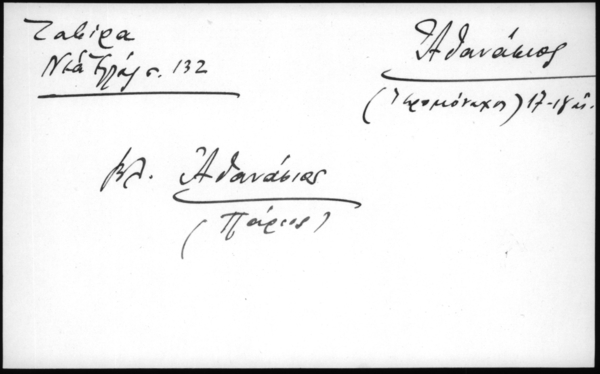 Ζαβίρα
Νέα Ἑλλάς σ. 132
Ἀθανάσιος
(Ἱερομόναχος) 17-18 αἰ.
βλ. Ἀθανάσιος
(Πάριος)